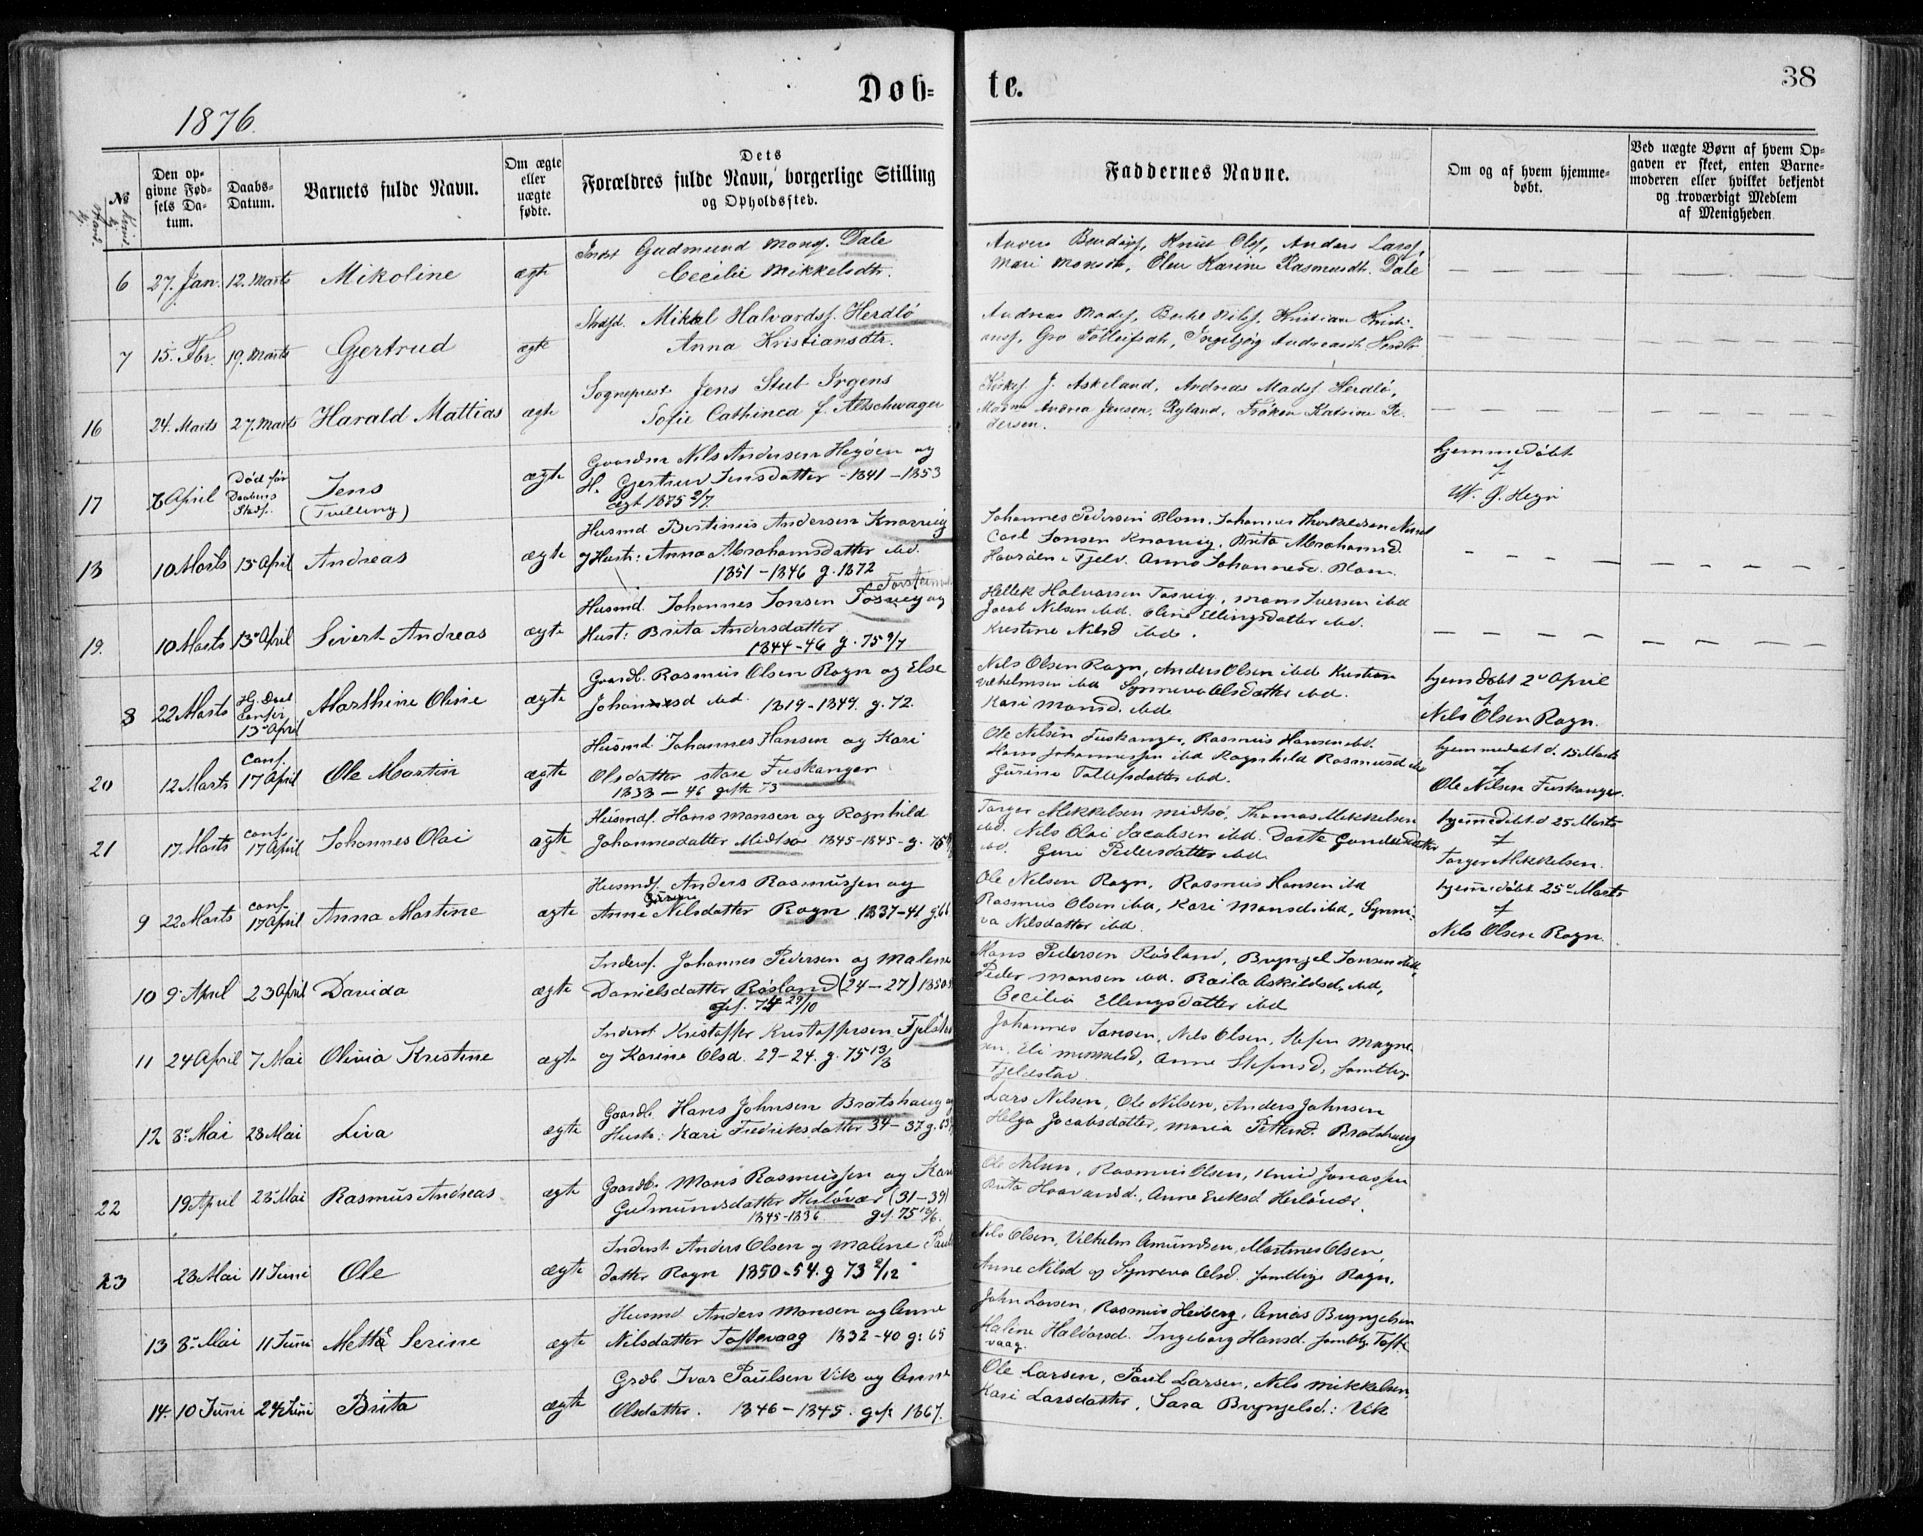 1876.
Døb=
te.
38
№
Den op-
givne Fød-
sels Da-
tum.
Daabs-
Datum.
Barnets fulde Navn.
Om ægte
eller
uægte
fødte.
Dets
Forældres fulde Navn, borgerlige Stilling
og Opholdssted.
Faddernes Navne.
Om og af hvem hjemme-
døbt.
Ved uægte Børn af hvem Op-
gaven er skeet, enten Barne-
moderen eller hvilket bekjendt
og troværdigt Medlem
af Menigheden
6 27. Jan. 12. Marts Mikoline ægte
Gudmund Mons. Dale
Cecilie Mikkelsdtr.
Knut Ols, Anders Larss,
Mari Monsdt, Karine Rasmusdt, Dale
7 15. Fbr. 19. Marts Gjertrud ægte
Mikkal Halvards. Herdlø
Anna Kristiansdtr.
Andreas Mads, Nils, Kristian Kristi-
ans, Gro Tolleifsdt, Ingebjørg Andreasdt Herdlø
16 24. Marts 27. Marts Harald Mattias ægte
Sogneprest Jens Stub Irgens
Sofie Cathinca f. Altschwager
J. Askeland, Andreas Mads Herdlø,
Andrea Jensen, Ryland, Frøken Katrine Pe-
dersen.
17 6 April Død før
Daabens
Stadf.
Jens
(Tvilling)
ægte
Gaardm Nils Andersen Hegøen og
H. Gjertrud Jensdatter 1841 - 1853
ægt 1875 2/7
hjemmedøbt
af
18 10 Marts 15 April Andreas ægte
Husmd Bertinius Andersen Knarrvig
og Hustr: Anna Abrahamsdatter ibd.
1851 - 1846 g. 1872
Johannes Pedersen Blom, Johannes Therkeldsen
Carl Jonsen Knarvig, Brita Abrahamsd.
Anna Johannesd. Blom
19. 10 Marts 15 April Sivert Andreas ægte
Husmd. Johannes Jonsen Tosvig og
Hust: Brita Andersdatter
1844 - 46 g. 75 9/7
Hellek Halvorsen Tosvig, Mons Iversen ibd
Jacob Nilsen ibd. Oline Ellingsdatter ibd.
Kristine Nilsd ibd.
8 22 Marts Marthine Oline ægte
Confir
15 April
Gaardb. Rasmus Olsen Rogn og Else
Johannesd ibd. 1819 - 1849. g. 72.
Nils Olsen Rogn, Anders Olsen ibd Kristian
Vilhelmsen ibd Synneva Olsdatter ibd.
Kari Monsd. ibd.
hjemdøbt 2 April
af
Nils Olsen Rogn.
20 12 Marts conf.
17 April Ole Martin ægte
Husmd. Johannes Hansen og Kari
Olsdatter store Fuskanger
1838 - 46 gifte 73
Ole Nilsen Fuskanger, Rasmus Hansen ibd.
Hans Johannessen ibd Ragnhild Rasmusd ibd
Gurine Tollefsdatter ibd.
hjemmedøbt d. 15 Marts
af
Ole Nilsen Fuskanger.
21 17 Marts conf.
17 April Johannes Olai ægte
Husmd. Hans Monsen og Ragnhild
Johannesdatter Midtsø 1845 - 1845 - g. 75
Torger Mikkelsen Midtsø, Thomas Mikkelsen
ibd. Nils Olai Jacobsen ibd. Dorte Gundersdatter
ibd. Guri Pedersdatter ibd.
hjemedøbt d 25 Marts
af
Torger Mikkelsen.
9 22 Marts conf.
17 April Anna Martine ægte
Husmd. Anders Rasmussen og
Anne Nilsdatter Rogn 1837 - 41 g.
Ole Nilsen Rogn, Rasmus Hansen ibd
Rasmus Olsen ibd, Kari Monsd ibd, Synni-
va Nilsdatter ibd.
hjemedøbt 25 Marts
af
Nils Olsen Rogn.
10 9 April 23 April Davida ægte
Inders. Johannes Pedersen og Malene
Danielsdatter Røsland (24 - 27)
gif. 74 29/10
Mons Pedersen Røsland, Brynjel Jonsen ibd,
Peder Monsen ibd. Raila Askildsd, ibd,
Cecilia Ellingsdatter ibd
11 24 April 7 Mai Olivia Kristine ægte
Inderst Kristoffer Kristoffersen
og Karine Olsd. 29 - 24. g. 75 13/3
Johannes Jansen, Nils Olsen, Stefen Magne-
sen, Eli Mikkelsd, Anne Stefensd, samtlige
Fjeldstad.
12 8 Mai 28 Mai Liva ægte
Gaardb. Hans Johnsen Bratshaug og
Hustr: Kari Fredriksdatter 34 - 37 g.
Lars Nilsen, Ole Nilsen, Anders Johnsen
Helga Jacobsdatter, Maria Bratshaug
22 19 April 28 Mai Rasmus Andreas ægte
Gaardb. Mons Rasmussen og Kari
Gudmundsdatter Herløvær (31 - 39)
1845 - 1836 gif. 75
Ole Nilsen, Rasmus Olsen, Knud Jonassen
Brita Anne Eriksd Herløvær.
23 28 Mai 11 Juni Ole ægte
Inderst. Anders Olsen og Malene Pauls
datter Rogn 1850 - 54. g 73 2/12
Nils Olsen, Vilhelm Amundsen, Martines Olsen,
Anne Nilsd og Synneva Olsd. samtlige Rogn.
13 8 Mai 11 Juni Mette Serine ægte
Husmd Anders Monsen og Anne
Nilsdatter Toftevaag 1832 - 40 g: 65
John Larsen, Rasmus Heiberg, Brynjelsen
Malene Haldorsd. Ingeborg Hansd. samtlg. Tofte
vaag
14. 10 Juni 24 Juni Brita ægte
Grdb. Ivar Paulsen Vik og Anne
Olsdatter. 1846 - 1845. gift 1867.
Ole Larsen, Paul Larsen, Nils Mikkelsen,
Kari Larsdatter, Sara Brynjelsd: Vik